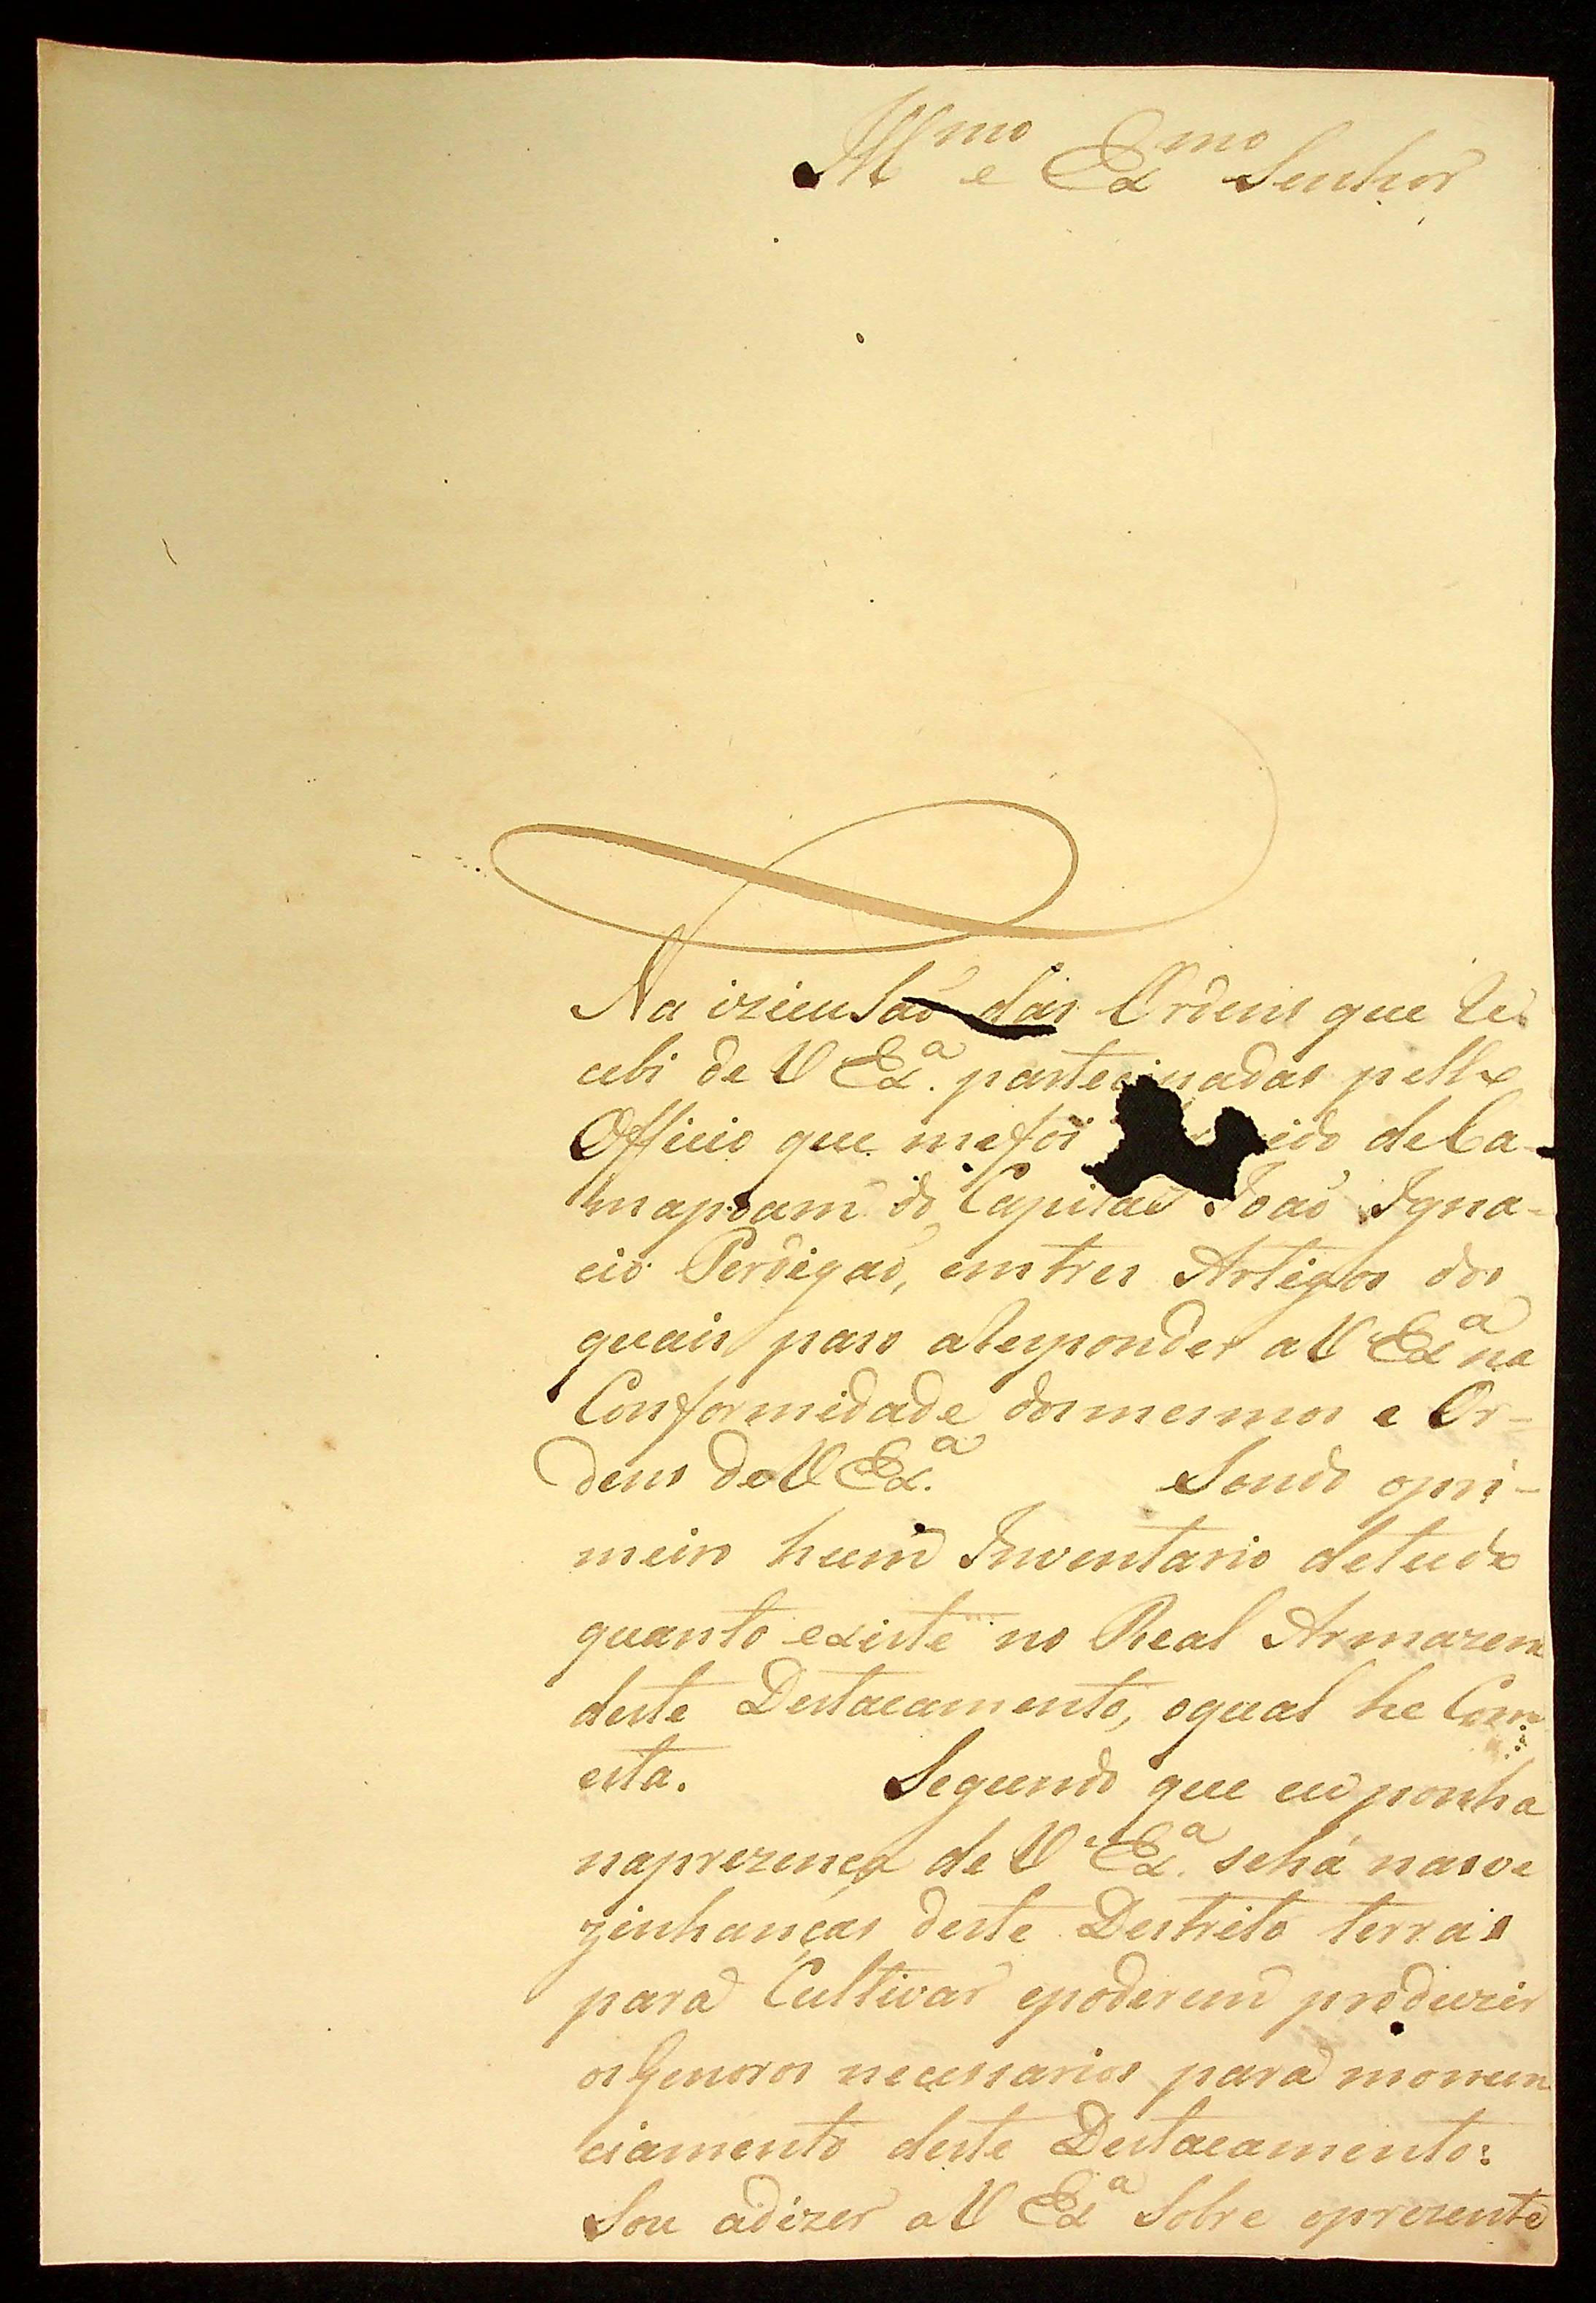 Ill.mo e Ex.mo Senhor
Na izicusaõ das Ordens que re-
cebi de V Ex.a partecipadas pello
Officio que mefoi deCa-
mapoam do Capitaõ Joaõ Igna-
cio Perdigaõ, emtres Artigos dos
quais paso aResponder aV Ex.a na
Conformidade dosmesmos e Or-
dens deV Ex.a Sendo opri-
meiro hum Inventario detudo
quanto existe no Real Armazem
deste Destacamento, oqual he Com
esta. Segundo que eu ponha
naprezença de V Ex.a sehá nasve
zinhanças deste Destrito terras
para Cultivar epoderem produzir
osGeneros necessarios para monun
ciamento deste Destacamento:
Sou adizer aV Ex.a Sobre oprezente